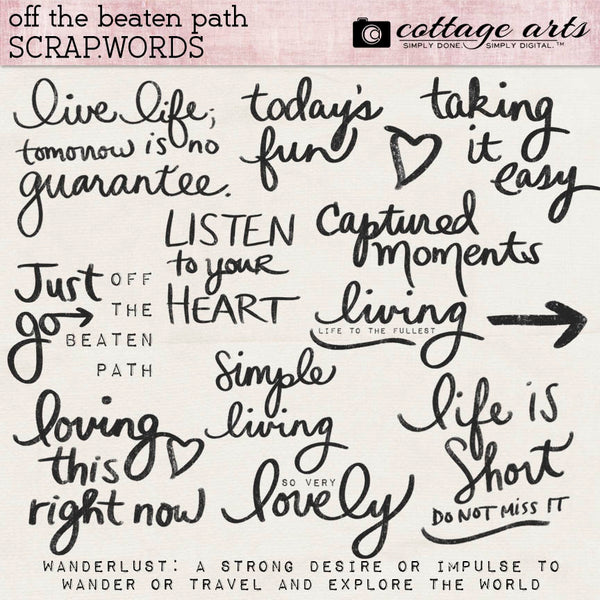 off the beaten path
SCRAP.WORDS
cottage arts
SIMPLY DONE. SIMPLY DIGITAL.™
live life;
tomorrow is no
guarantee.
today's
fun
taking
it
easy
LISTEN
to your
HEART
Captured
moments
Just
go
OFF
THE
BEATEN
PATH
living
LIFE TO THE FULLEST
simple
living
loving
this
right now
SO VERY
lovely
life is
short
DO NOT MISS IT
WANDERLUST: A STRONG DESIRE OR IMPULSE TO
WANDER OR TRAVEL AND EXPLORE THE WORLD